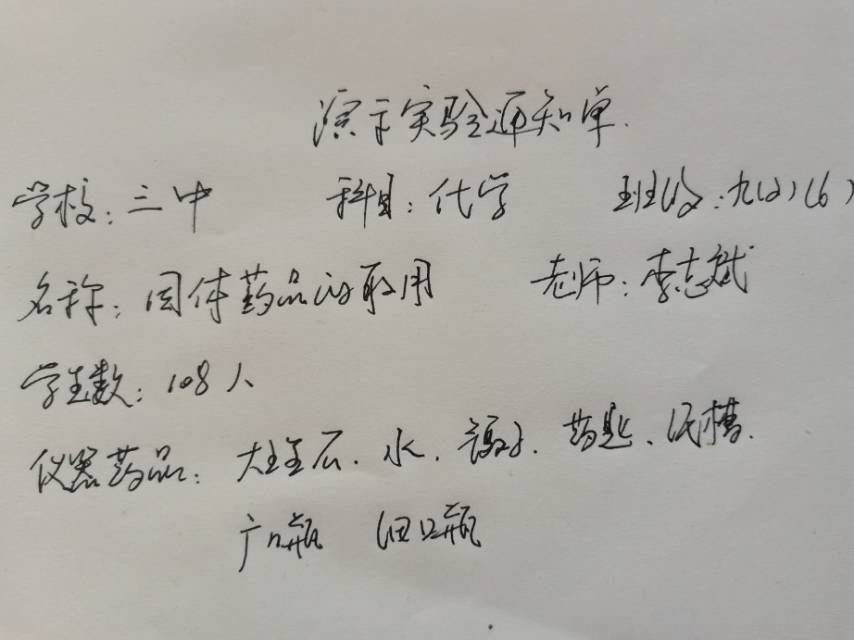 演示实验通知单.
学校：三中 科目：化学 班级：九(2)(6)
名称：固体药品的取用 老师：李志斌
学生数：108人
仪器药品：大理石、水、镊子、药匙、纸槽.
广口瓶 细口瓶